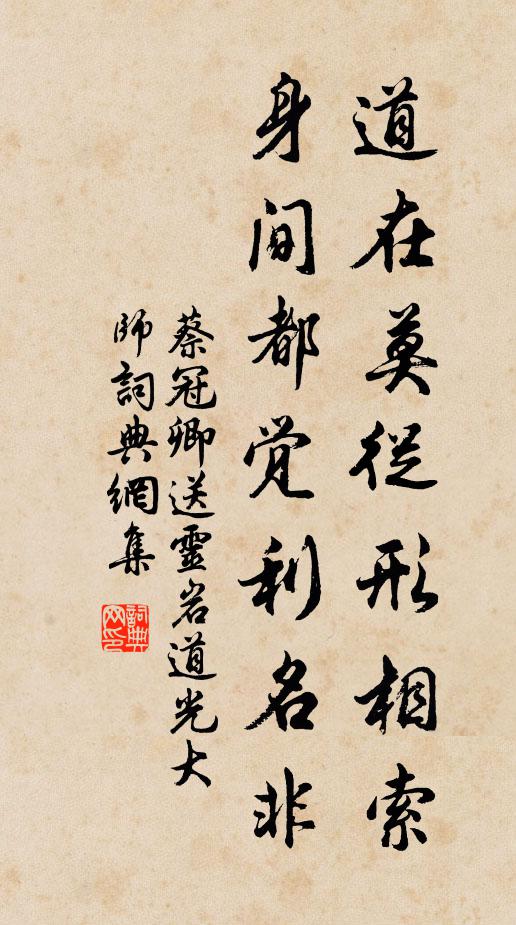 道在莫從形相索
身間都觉利名非
蔡冠卿送靈岩道光大
師詞典網集
詞典
网印